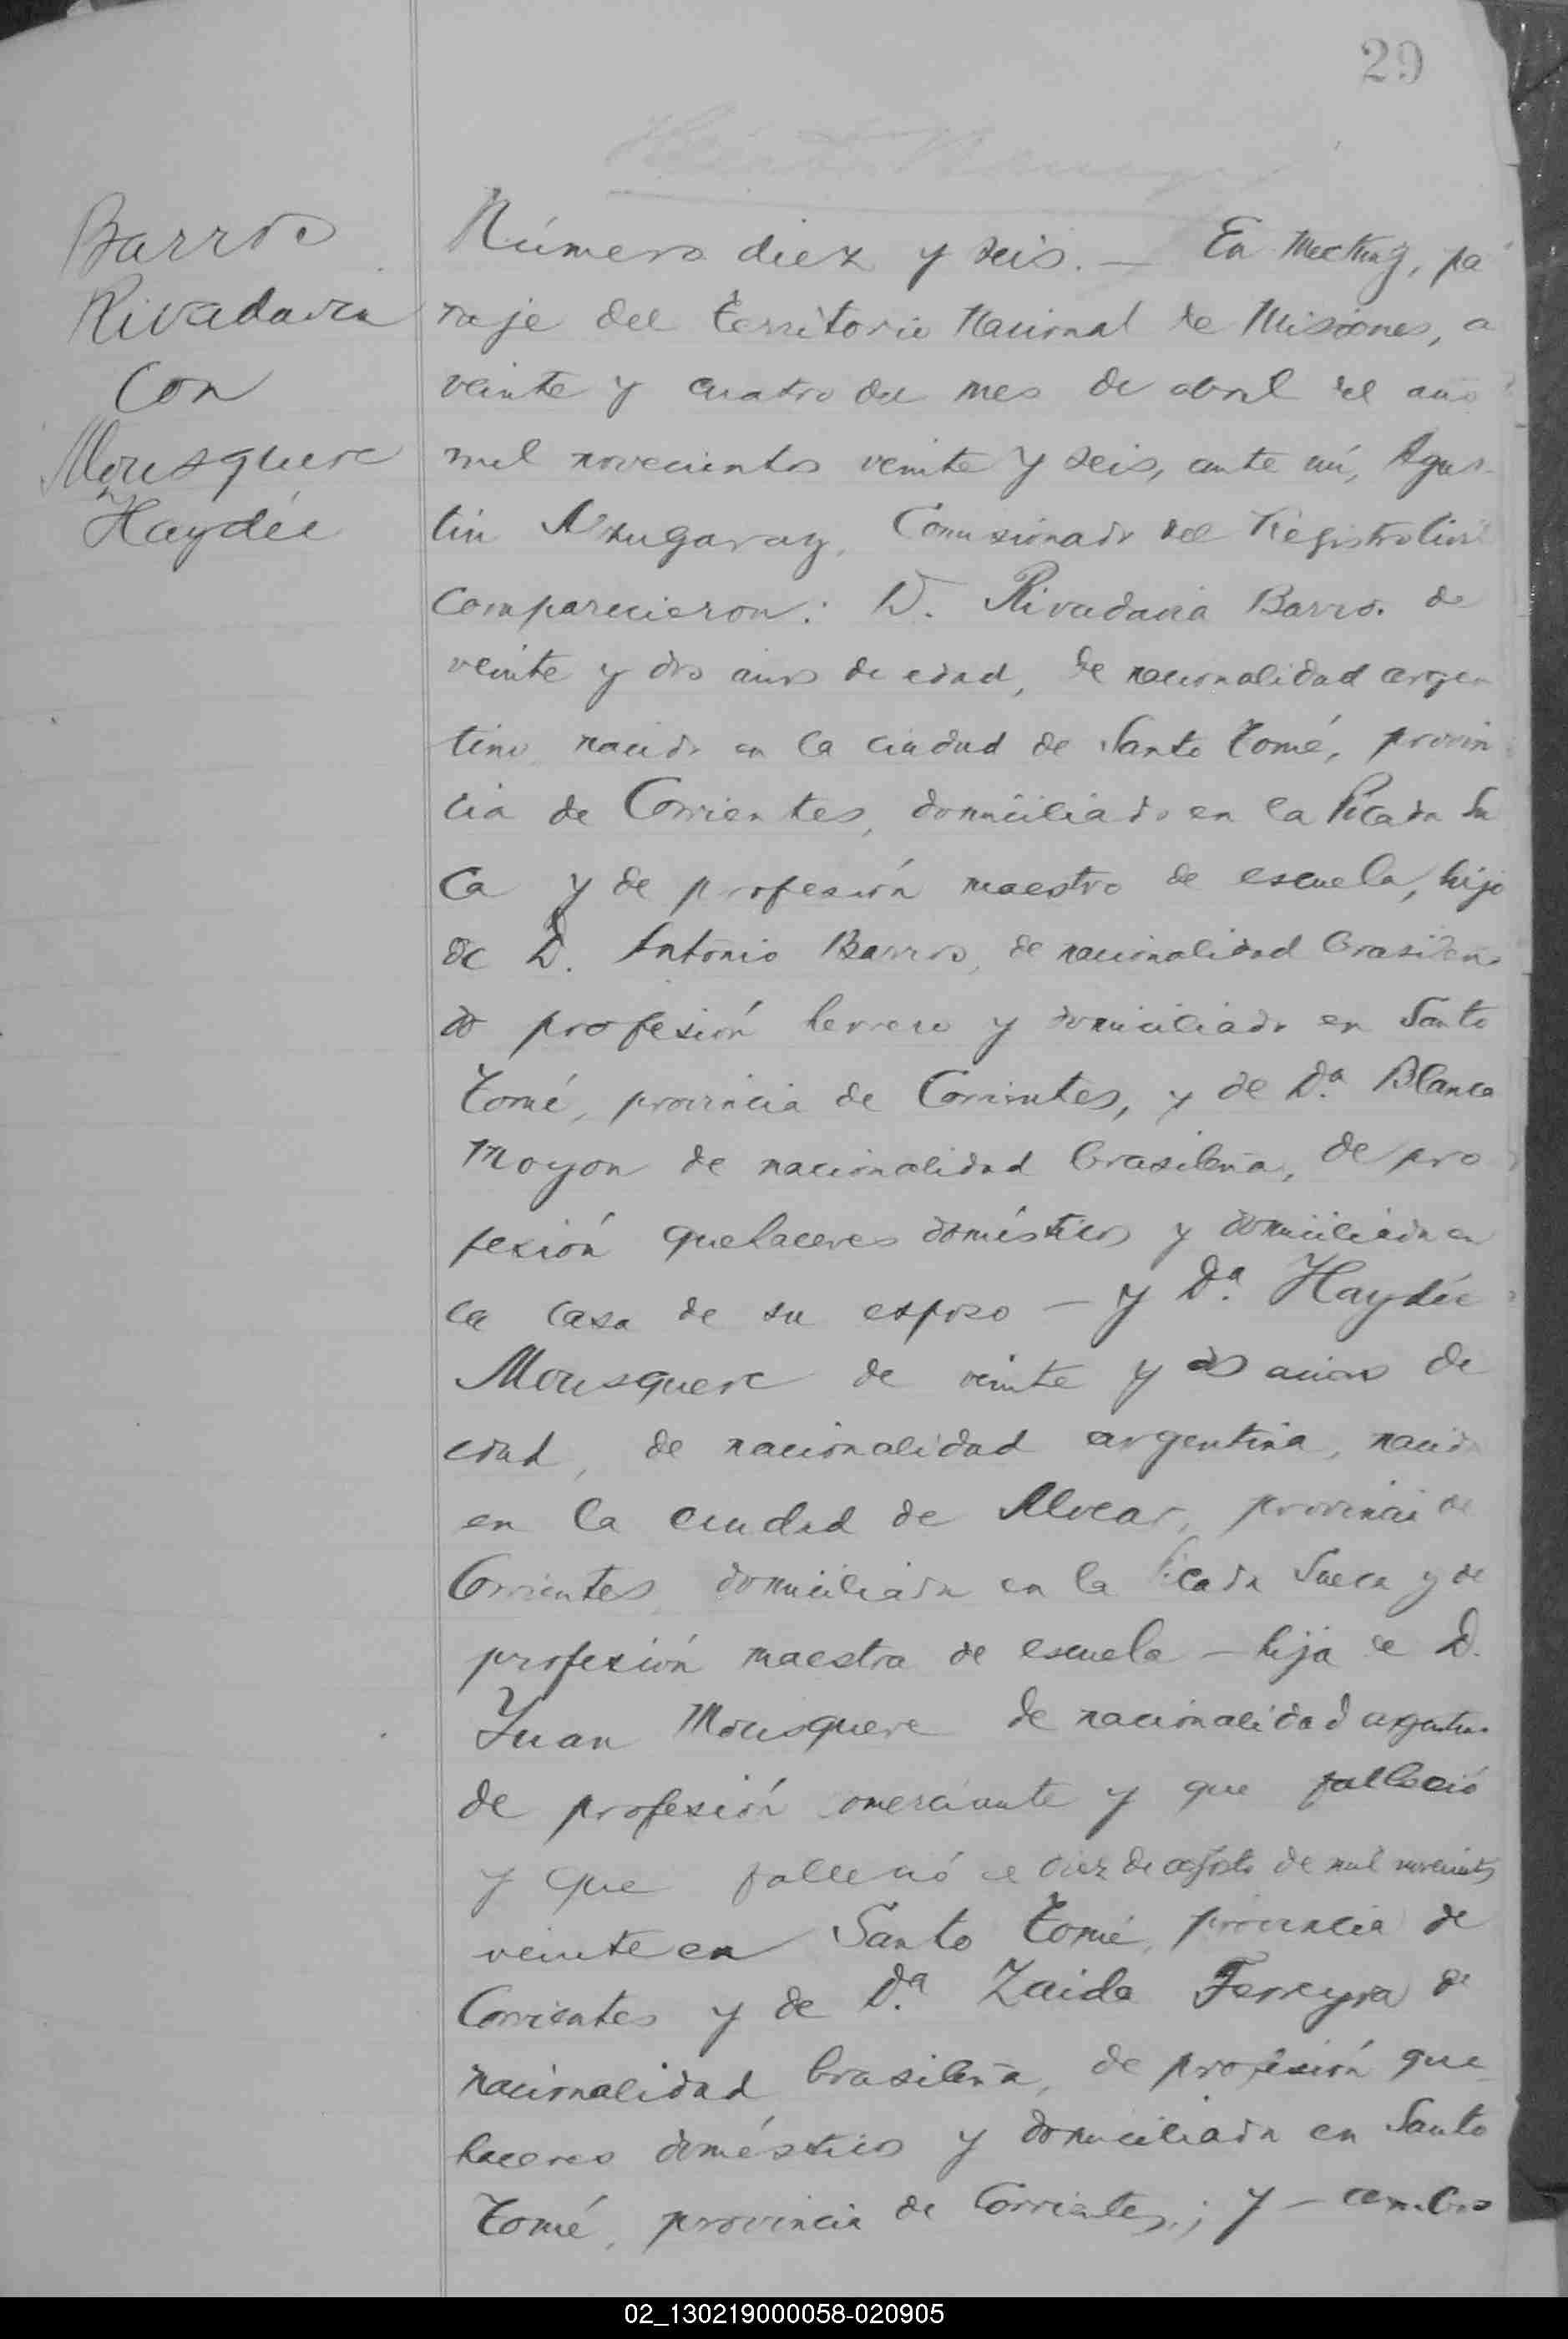 29
Barros
Rivadavia
con
Mousquere
Haydée
Número diez y seis. — En Mecking, pa
raje del Territorio Nacional de Misiones, a
veinte y cuatro del mes de abril del año
mil novecientos veinte y seis, ante mí, Agus-
tin Comisionado del Registro Civil
comparecieron: D. Rivadavia Barros de
veinte y dos años de edad, de nacionalidad argen
tino nacido en la ciudad de Santo Tomé, provin
cia de Corrientes, domiciliado en la Picada Su
ca y de profesión maestro de escuela, hijo
de D. Antonio Barros, de nacionalidad brasileño
de profesión herrero y domiciliado en Santo
Tomé, provincia de Corrientes, y de Da. Blanca
Moyon de nacionalidad brasileña, de pro
fesión quehaceres domésticos y domiciliada en
la casa de su esposo — y Da. Haydée
Mousquere de veinte y dos años de
edad, de nacionalidad argentina, nacida
en la ciudad de Alvear, provincia de
Corrientes domiciliada en la Picada Sueca y de
profesión maestra de escuela — hija de D.
Juan Mousquere de nacionalidad argentina
de profesión comerciante y que falleció
y que falleció el diez de agosto de mil novecientos
veinte en Santo Tomé, provincia de
Corrientes y de Da. Zaida Ferreyra de
nacionalidad brasileña, de profesión que
haceres domésticos y domiciliada en Santo
Tomé, provincia de Corrientes; y — ambos
02_130219000058-020905